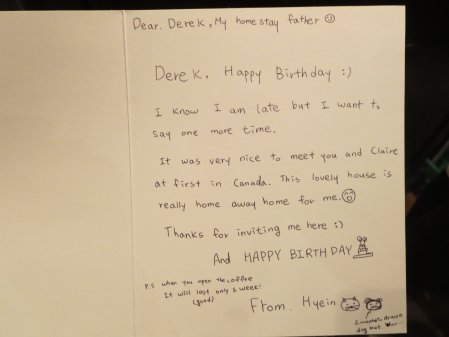 Dear. Derek, My homestay father
Derek, Happy Birthday :)
I know I am late but I want to
say one more time.
It was very nice to meet you and Claire
at first in Canada. This lovely house is
really home away home for me.
Thanks for inviting me here :)
And HAPPY BIRTHDAY
P.S when you open the coffee
It will last only 1 week!
(good)
From. Hyein
I wanted draw a
dog but.